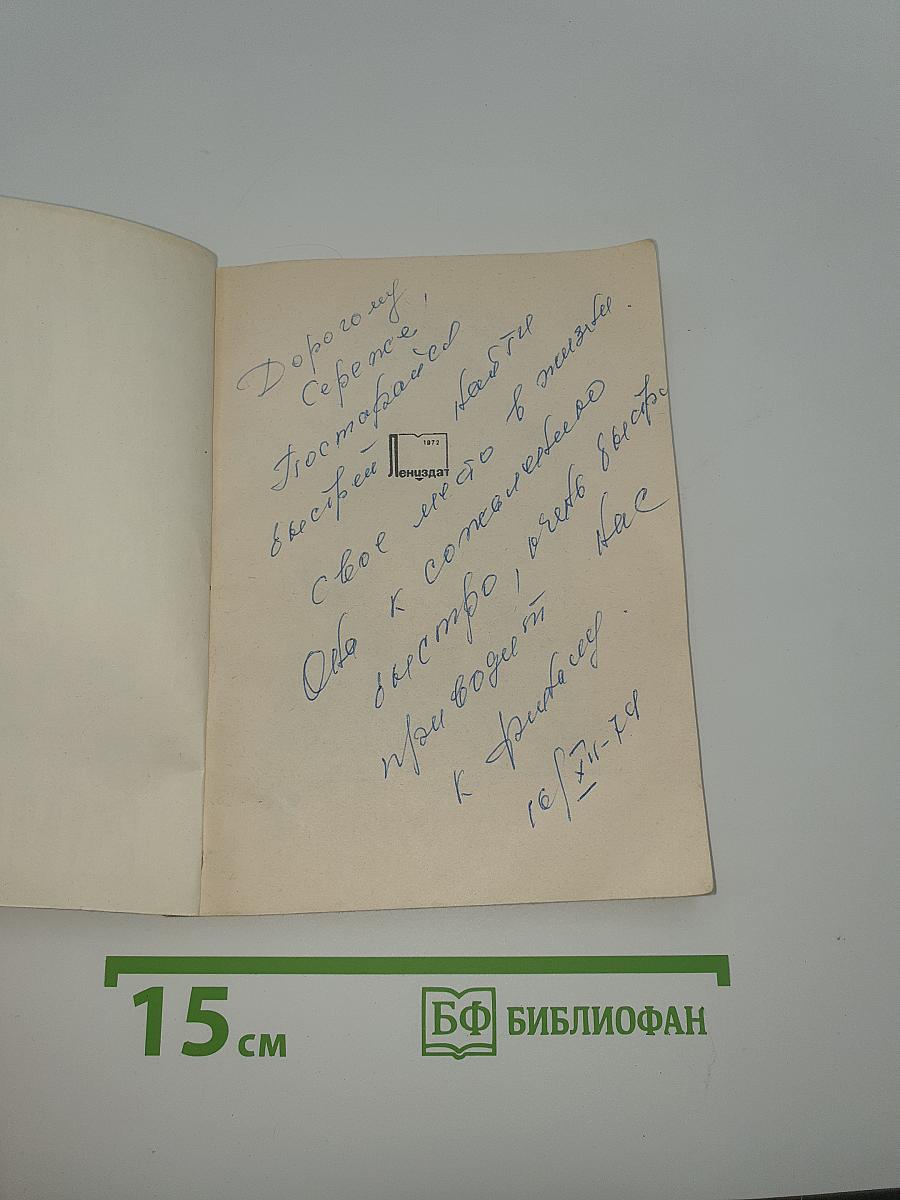 Дорогому
Сереже,
Постарайся
быстрей найти
свое место в жизни.
Она к сожалению
быстро, очень быстро
приводит нас
к финалу.
16/XII-74
1972
Лениздат
15 см
БФ БИБЛИОФАН